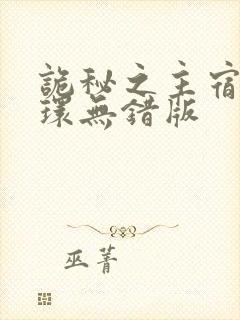 詭秘之主宿
環無錯版
巫菁